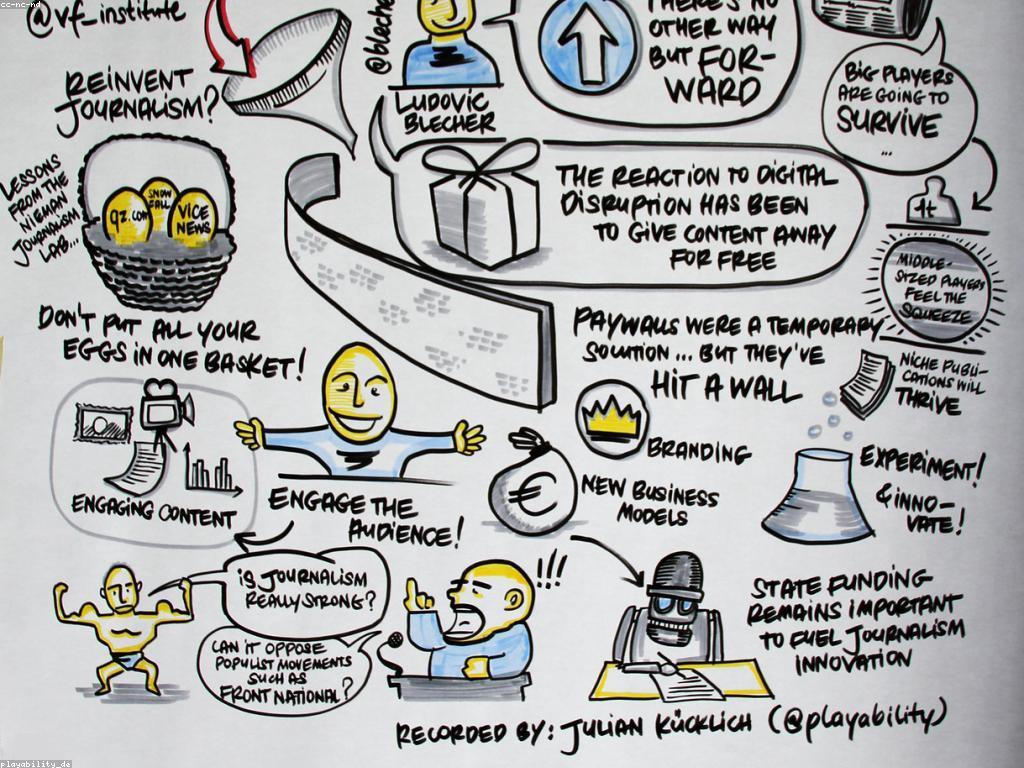 cc-nc-nd
@vf_institute
REINVENT
JOURNALISM?
LESSONS
FROM THE
NIEMAN
JOURNALISM
LAB...
qz.com
SNOW
FALL
VICE
NEWS
DON'T PUT ALL YOUR
EGGS IN ONE BASKET!
@bleche
LUDOVIC
BLECHER
THERE'S NO
OTHER WAY
BUT FOR-
WARD
THE REACTION TO DIGITAL
DISRUPTION HAS BEEN
TO GIVE CONTENT AWAY
FOR FREE
BIG PLAYERS
ARE GOING TO
SURVIVE
...
1t
MIDDLE-
SIZED PLAYERS
FEEL THE
SQUEEZE
NICHE PUBLI-
CATIONS WILL
THRIVE
PAYWALLS WERE A TEMPORARY
SOLUTION... BUT THEY'VE
HIT A WALL
BRANDING
€
NEW BUSINESS
MODELS
EXPERIMENT!
& INNO-
VATE!
ENGAGING CONTENT
ENGAGE THE
AUDIENCE!
IS JOURNALISM
REALLY STRONG?
CAN IT OPPOSE
POPULIST MOVEMENTS
SUCH AS
FRONT NATIONAL?
!!!
STATE FUNDING
REMAINS IMPORTANT
TO FUEL JOURNALISM
INNOVATION
RECORDED BY: JULIAN KÜCKLICH (@playability)
playability_de